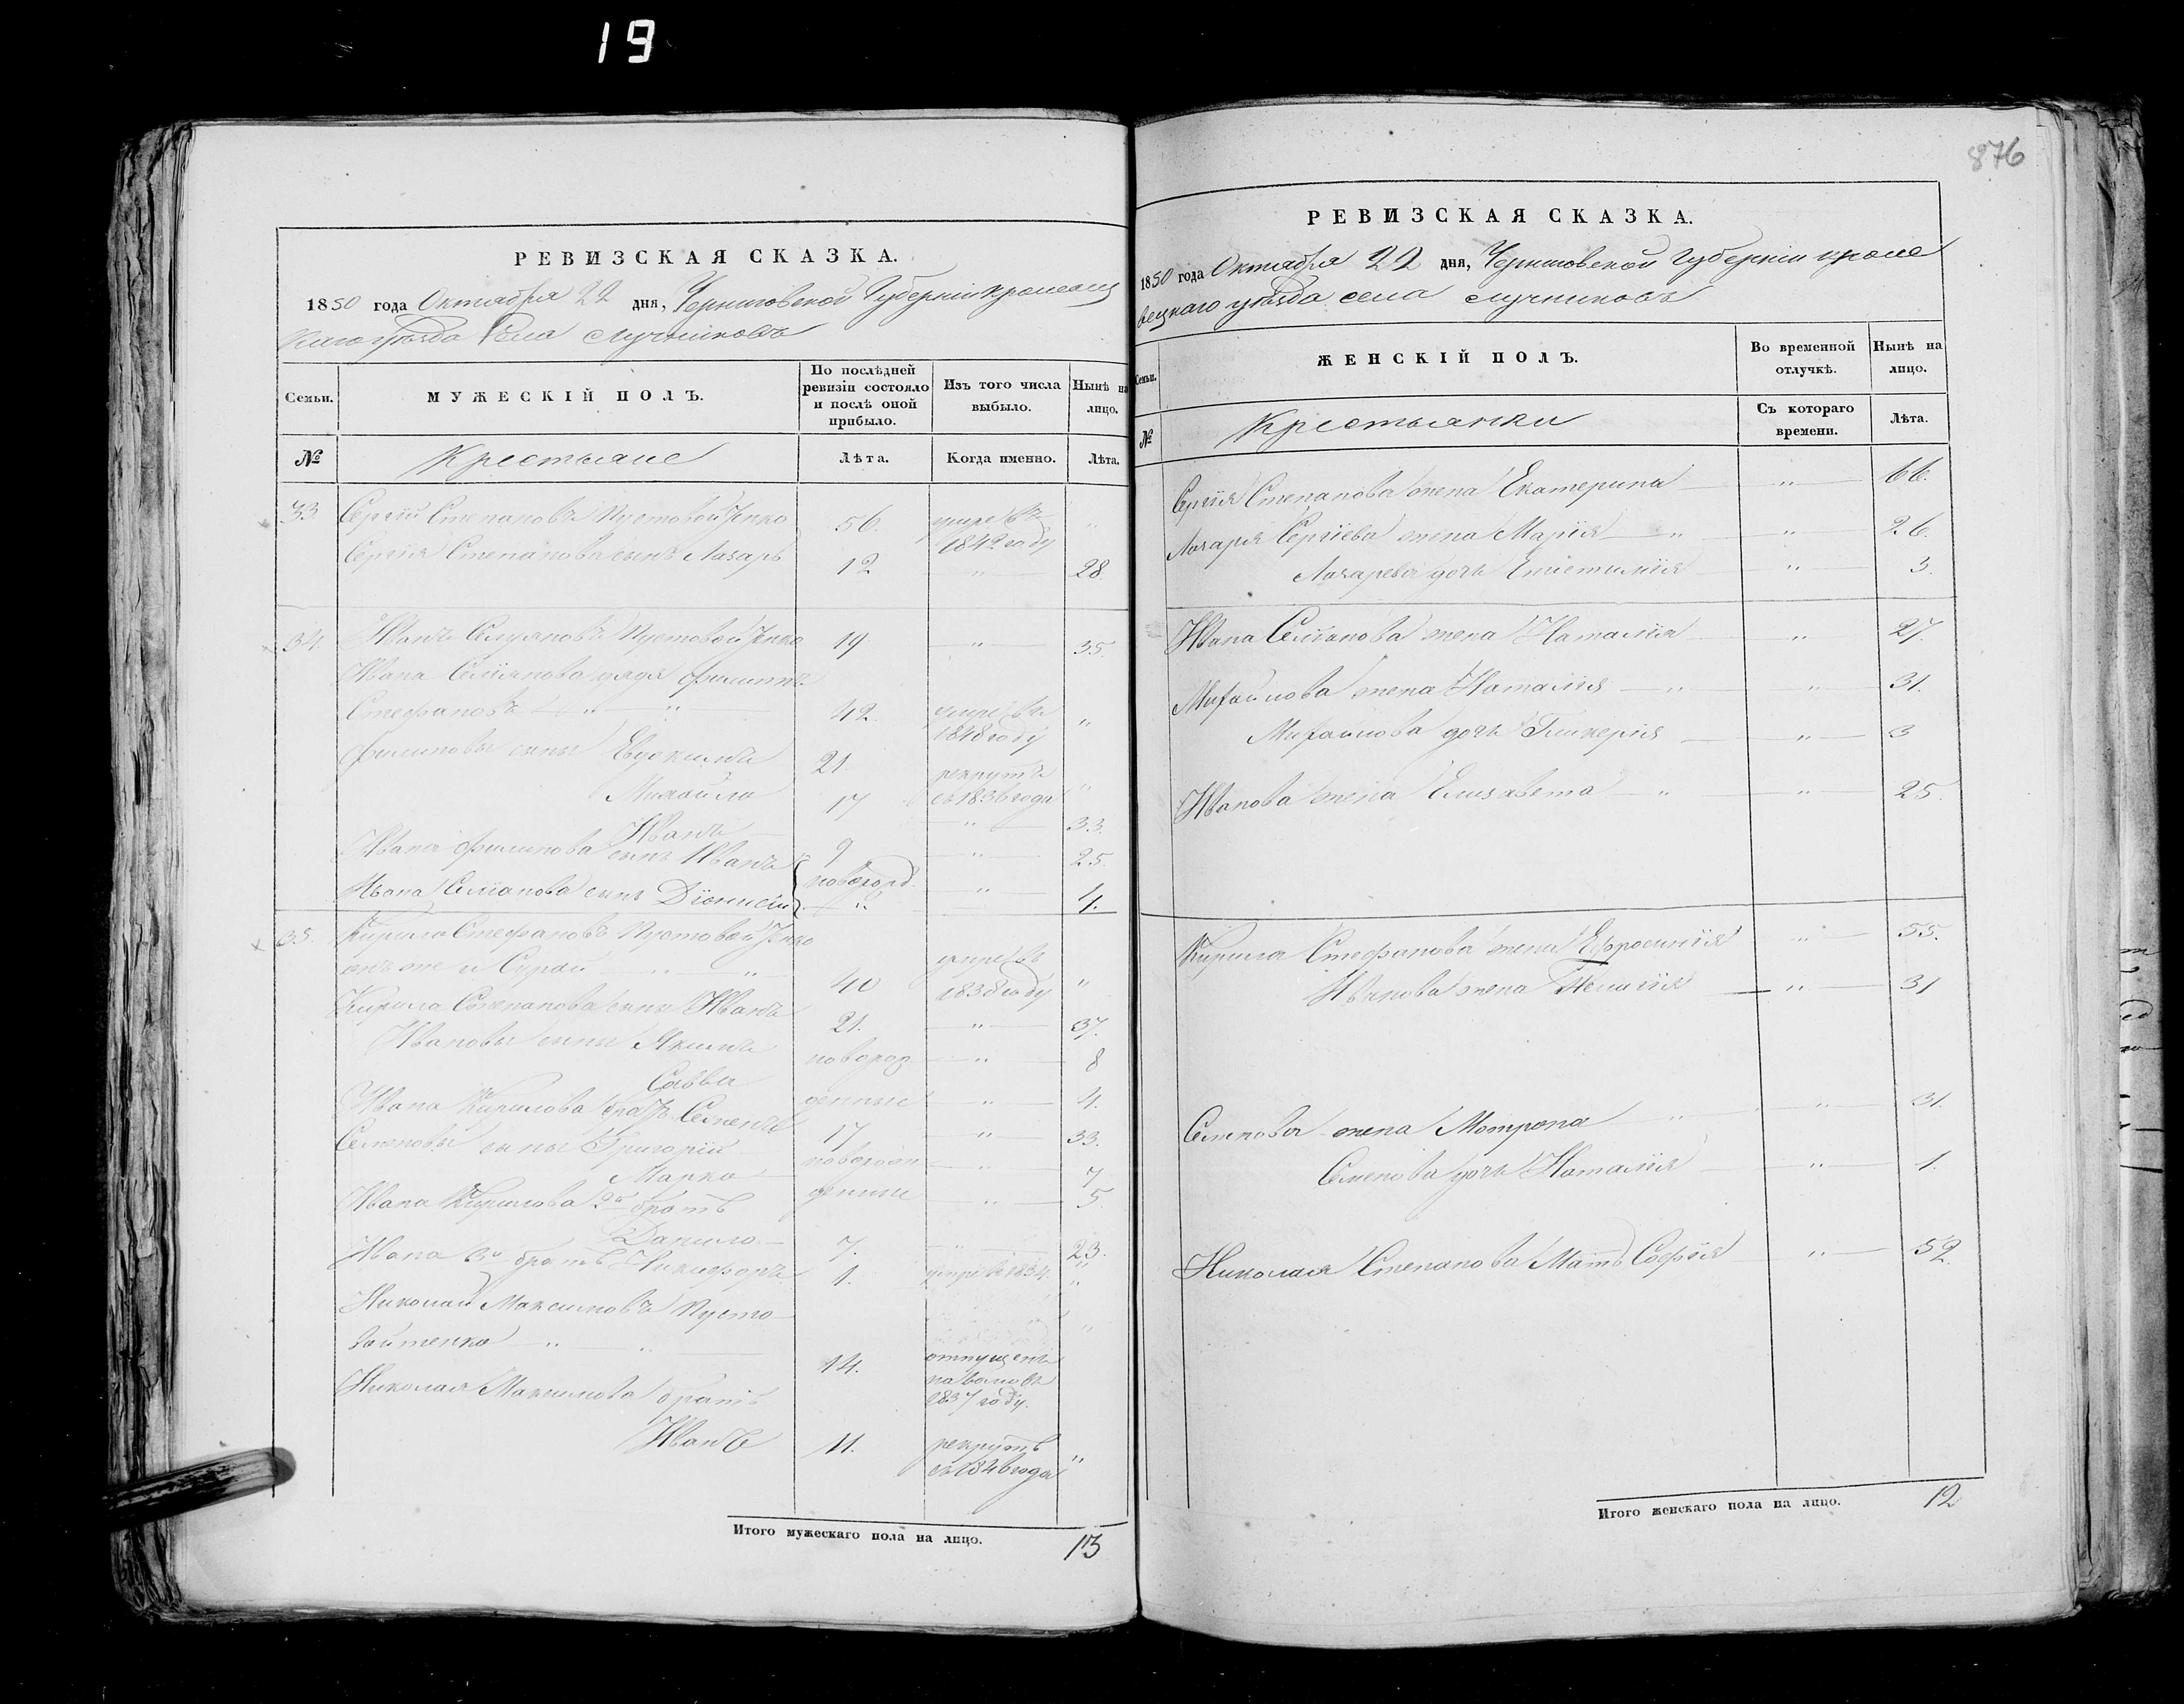 19
876
РЕВИЗСКАЯ СКАЗКА.
1850 года Октября 22 дня, Черниговской Губерніи Кролевец
каго уѣзда Села Лучниковъ
Семьи.
МУЖЕСКІЙ ПОЛЪ.
По послѣдней ревизіи состояло и послѣ оной прибыло.
Изъ того числа выбыло.
Нынѣ на лицо.
№
Крестьяне
Лѣта.
Когда именно.
Лѣта.
33 Сергій Степановъ Пустовойтенко 56. умре въ 1842 году "
Сергія Степанова сынъ Лазарь 12 " 28.
34 Иванъ Селуяновъ Пустовойтенко 19 " 35.
Ивана Селіянова дядя Филиппъ
Стефановъ " " 42. умре въ 1848 году "
Филиповы сыны Евдокимъ 21. рекрутъ съ 1836 года "
Михайло 17 " 33.
Иванъ 9 " 25.
Ивана Филипова сынъ Иванъ новорожд. "
Ивана Селіанова сынъ Діонисій " 4.
35. Кирило Стефановъ Пустовойтенко
онъ же и Сурай " " 40 умре въ 1838 году "
Кирила Степанова сыны Иванъ 21. " 37.
Ивановы сыны Якимъ новорож " 8
Савва денные " 4.
Ивана Кирилова братъ Семенъ 17 " 33.
Семеновы сыны Григорій новорож " 7
Марко денные " 5.
Ивана Кирилова 2й братъ
Данило 7. " 23.
Ивана 3й братъ Никифоръ 1. умре въ 1834. "
Николай Максимовъ Пусто
войтенко " " 14. отпущенъ на волю въ 1837 году. "
Николая Максимова братъ
Иванъ 11. рекрутъ съ 1846 года "
Итого мужескаго пола на лицо. 13
РЕВИЗСКАЯ СКАЗКА.
1850 года Октября 22 дня, Черниговской Губерніи Кроле
вецкаго уѣзда села Лучниковъ
Семьи.
ЖЕНСКІЙ ПОЛЪ.
Во временной отлучкѣ.
Нынѣ на лицо.
№
Крестьянки
Съ котораго времени.
Лѣта.
Сергія Степанова жена Екатерина " 66.
Лазаря Сергіева жена Марія " " 26.
Лазарева дочь " 3.
Ивана Селіанова жена Наталія " 27.
Михайлова жена Наталія " " 31.
Михайлова дочь Гликерія " 3
Иванова жена Елизавета " " 25.
Кирила Стефанова жена Ефросинія " 55.
Иванова жена " 31
Семенова жена Мотрона " " 31.
Семенова дочь Наталія " 1.
Николая Степанова Мать Софія " 52.
Итого женскаго пола на лицо. 12